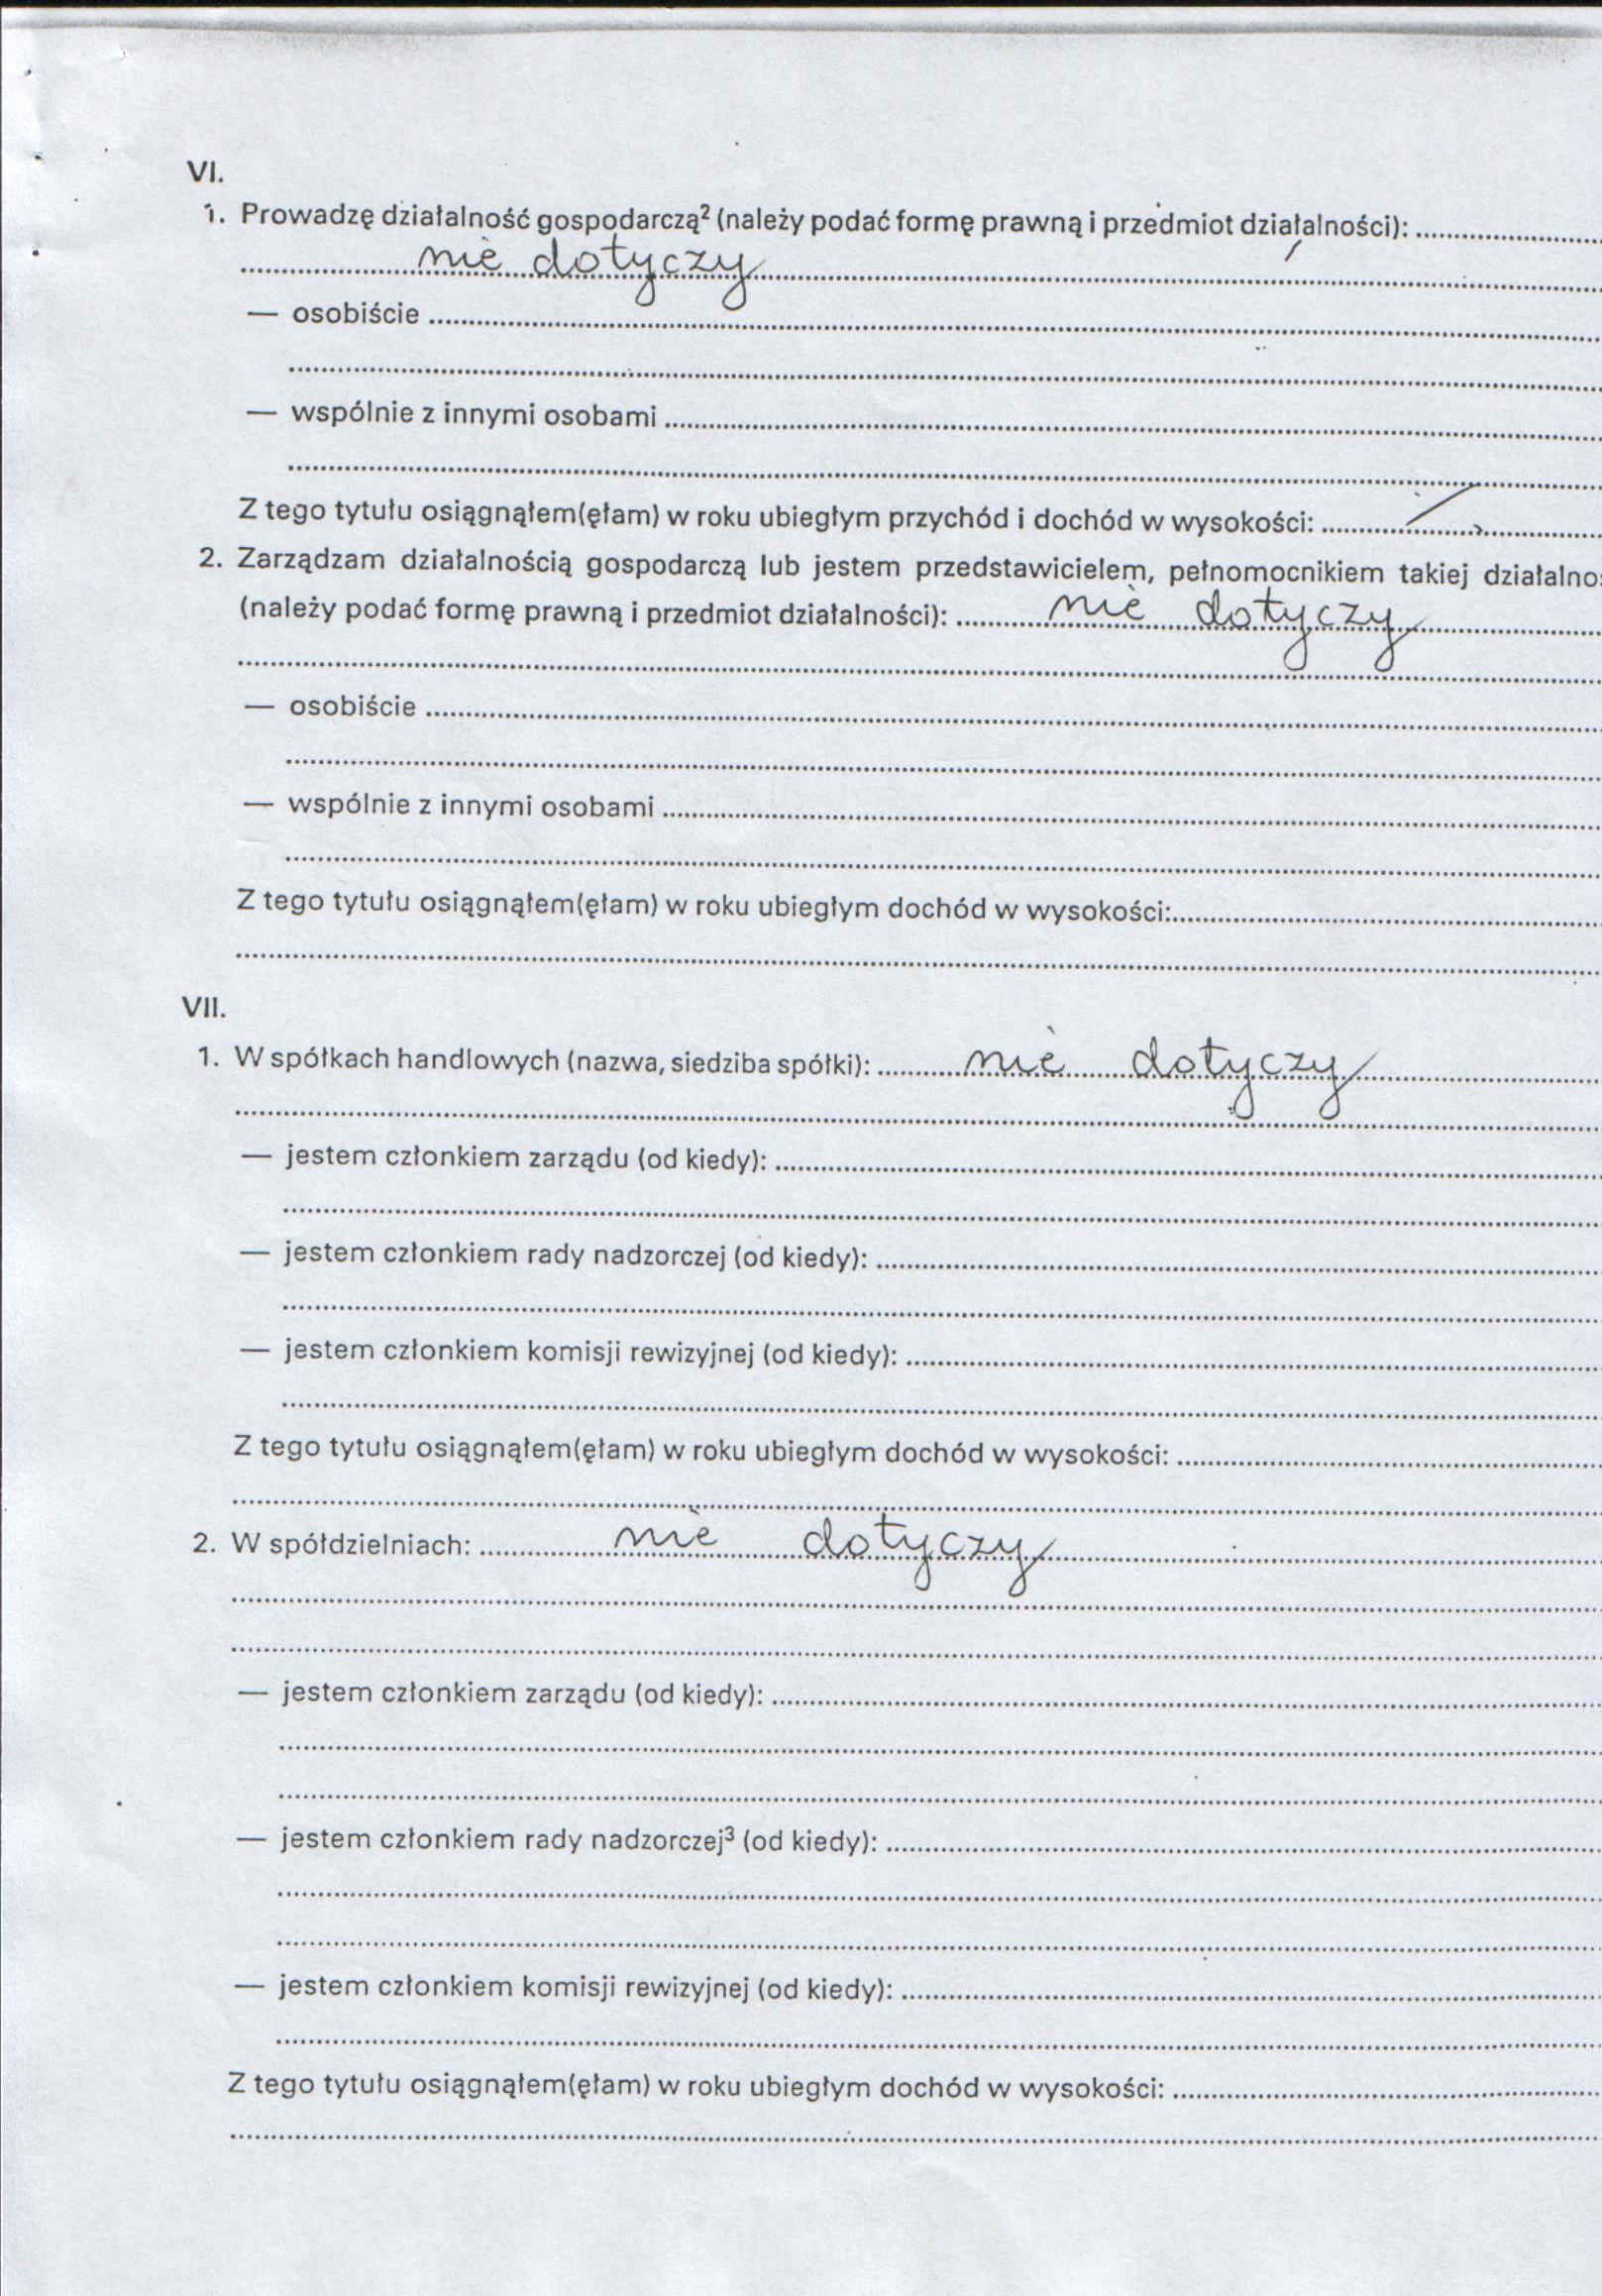 VI.
1. Prowadzę działalność gospodarczą² (należy podać formę prawną i przedmiot działalności):
nie dotyczy
— osobiście
— wspólnie z innymi osobami
Z tego tytułu osiągnąłem(ęłam) w roku ubiegłym przychód i dochód w wysokości:
2. Zarządzam działalnością gospodarczą lub jestem przedstawicielem, pełnomocnikiem takiej działalno
(należy podać formę prawną i przedmiot działalności): nie dotyczy
— osobiście
— wspólnie z innymi osobami
Z tego tytułu osiągnąłem(ęłam) w roku ubiegłym dochód w wysokości:
VII.
1. W spółkach handlowych (nazwa, siedziba spółki): nie dotyczy
— jestem członkiem zarządu (od kiedy):
— jestem członkiem rady nadzorczej (od kiedy):
— jestem członkiem komisji rewizyjnej (od kiedy):
Z tego tytułu osiągnąłem(ęłam) w roku ubiegłym dochód w wysokości:
2. W spółdzielniach: nie dotyczy
— jestem członkiem zarządu (od kiedy):
— jestem członkiem rady nadzorczej³ (od kiedy):
— jestem członkiem komisji rewizyjnej (od kiedy):
Z tego tytułu osiągnąłem(ęłam) w roku ubiegłym dochód w wysokości: